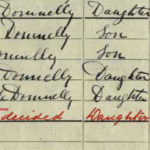 Donnelly Daughter
Donnelly Son
Donnelly Son
Donnelly Daughter
Donnelly Daughter
decided Daughter